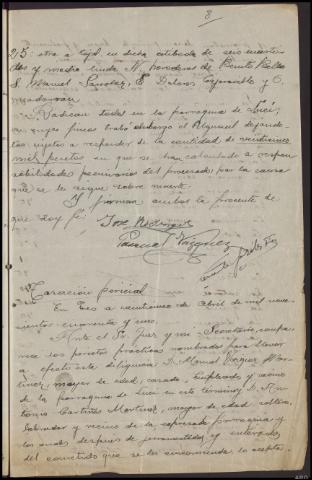 8
25: otra a id. en dicha cabida de seis
dos y media linda N. herederos de Benito
S. Manuel Sanchez, E Dolores y O.
Radican todas en la parroquia de
en cuyas fincas trabó embargo el Alguacil dejando
las sujetas a responder de la cantidad de veinticinco
mil pesetas en que se han calculado a respon
sabilidades pecuniarias del procesado por la causa
que se le sigue sobre muerte.
Y firman ambos la presente de
que doy fé.
Jose Rodriguez
Pascual Vazquez
Tasación pericial
En a veinticinco de Abril de mil nove
cientos cuarenta y uno.
Ante el Sr. Juez y mi Secretario, compare
cen los peritos prácticos nombrados para llevar
a efecto esta diligencia D. Manuel
mayor de edad, casado, empleado y vecino
de la parroquia de en este término y D. An
tonio Martinez, mayor de edad, soltero,
labrador y vecino de la expresada parroquia y
los cuales despues de juramentados y enterados
del cometido que se les encomienda lo acepta